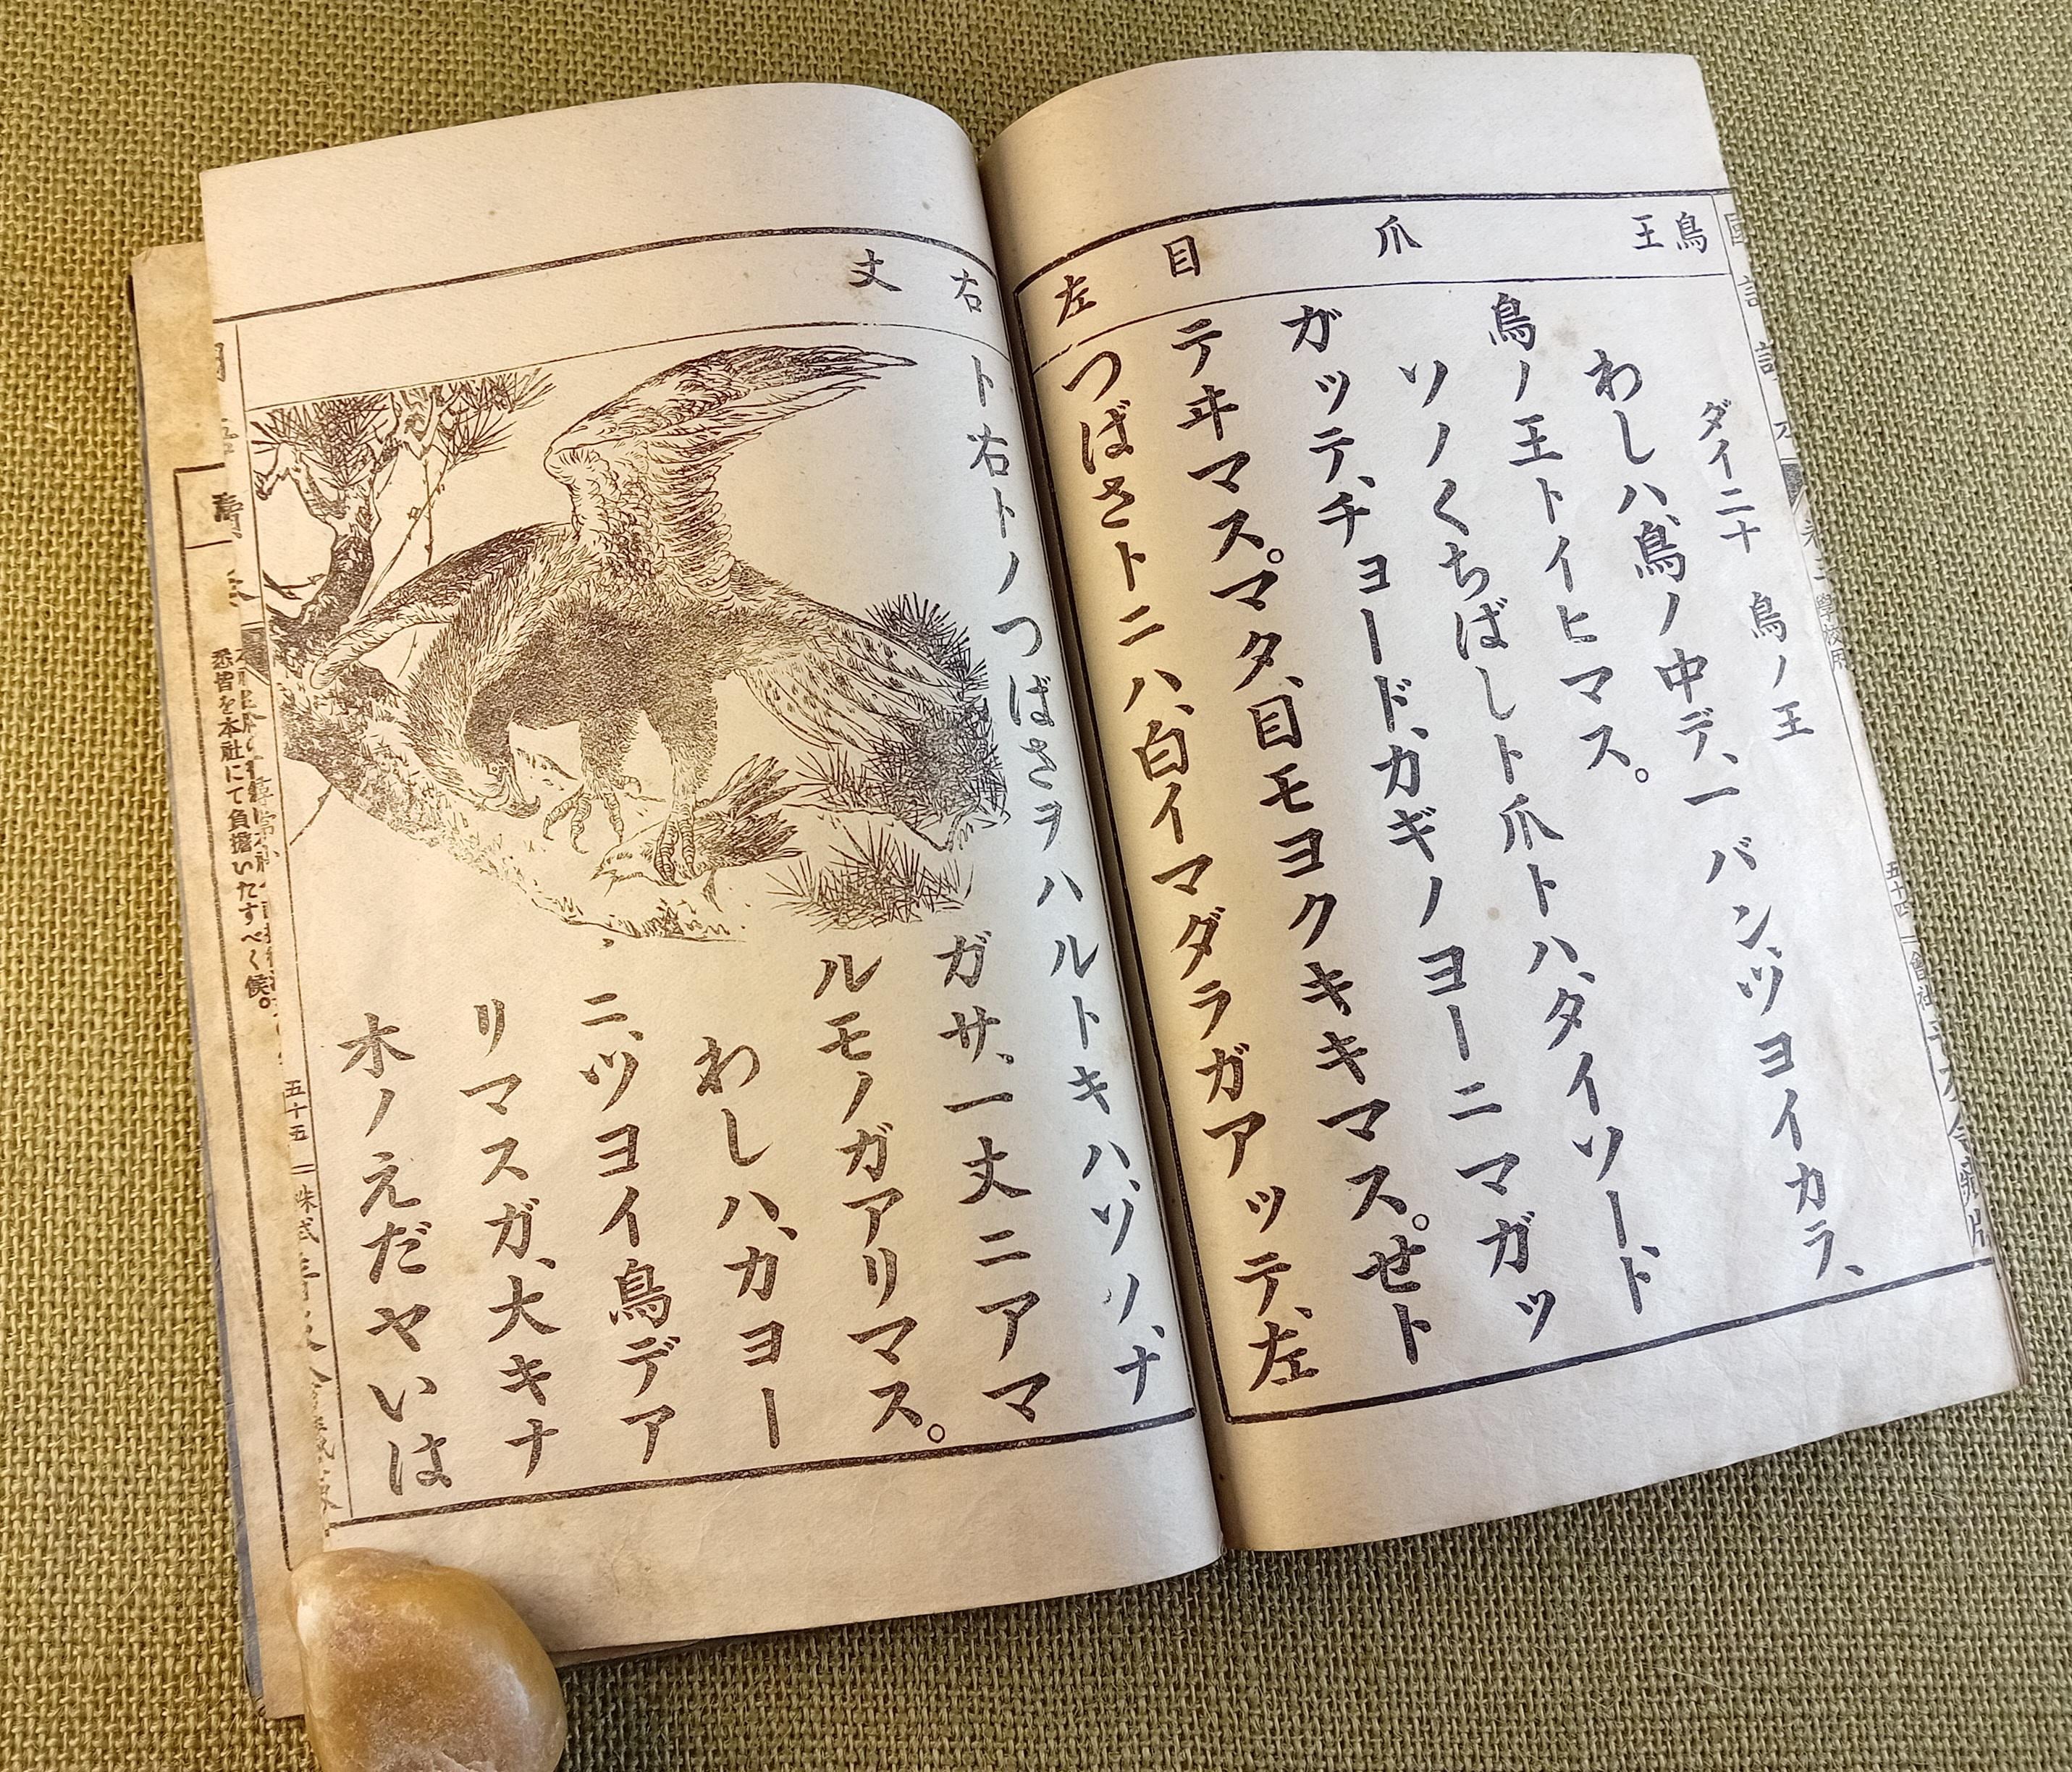 鳥
王
爪
目
左
ダイ二十 鳥ノ王
わしハ、鳥ノ中デ、一バン、ツヨイカラ、
鳥ノ王トイヒマス。
ソノくちばしト爪トハ、タイソード、
ガッテ、チョード、カギノヨーニマガッ
テヰマス。マタ、目モヨクキキマス。せト
つばさトニハ、白イマダラガアッテ、左
右
丈
ト右トノつばさヲハルトキハ、ソノ、ナ
ガサ、一丈ニアマ
ルモノガアリマス。
わしハ、カヨー
ニ、ツヨイ鳥デア
リマスガ、大キナ
木ノえだヤいは
五十四
五十五
悉皆を本社にて負擔いたすべく候。